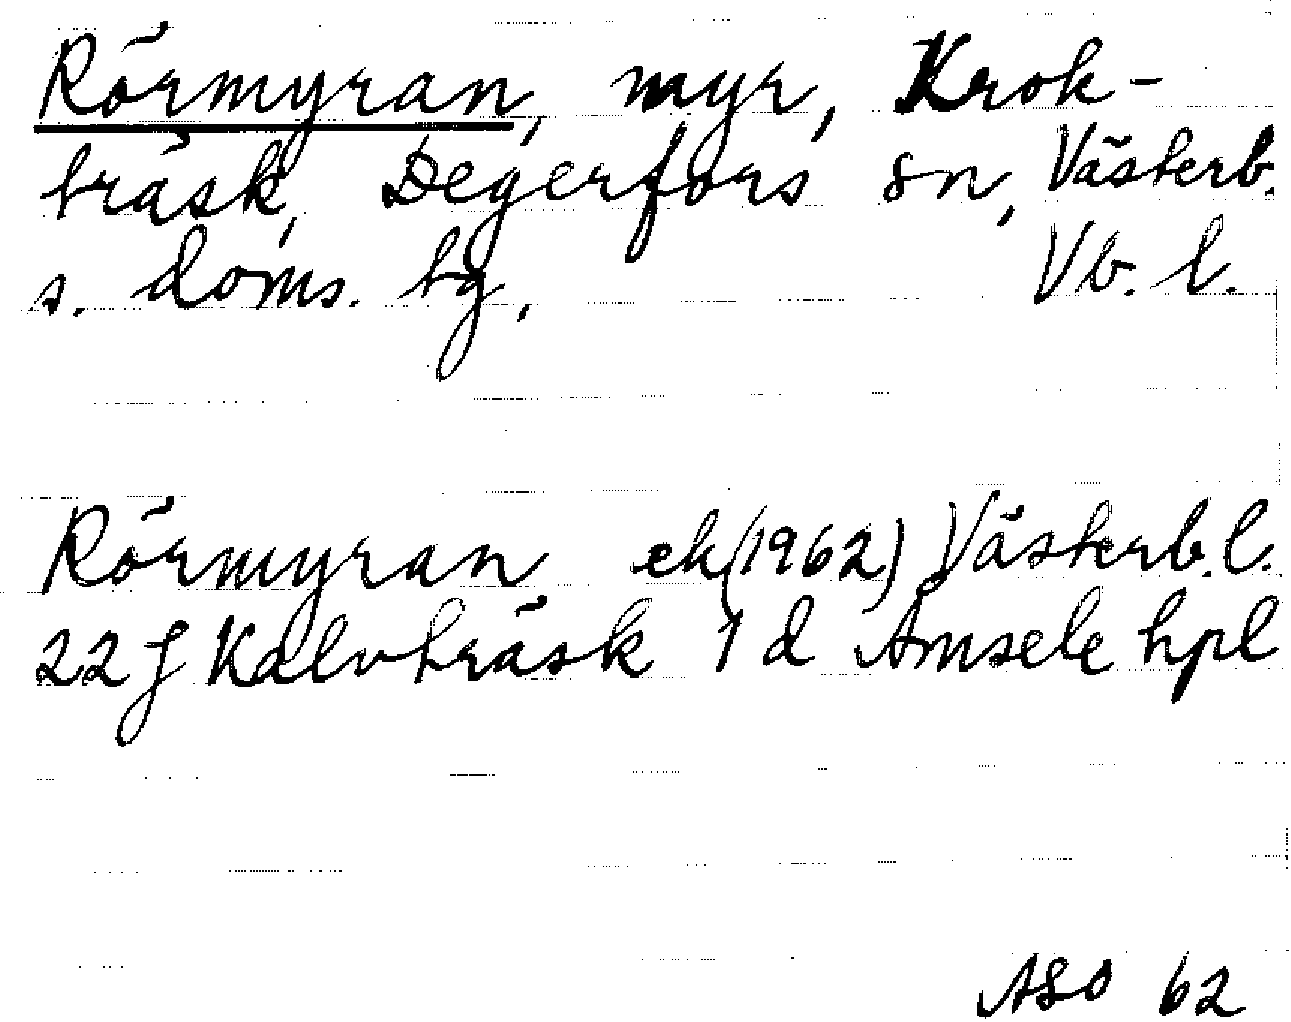 Rörmyran, myr, Krok-
träsk, Degerfors sn, Västerb.
s. doms. tg, Vb. l.
Rörmyran ek (1962) Västerb. l.
22 J Kalvträsk 1 d Åmsele hpl
ASO 62